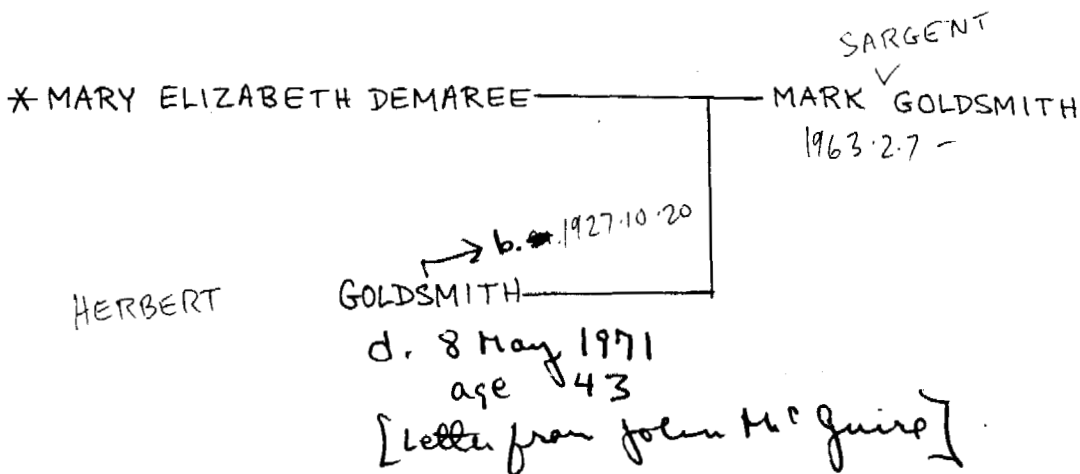 SARGENT
* MARY ELIZABETH DEMAREE MARK GOLDSMITH
1963.2.7 -
b. 1927.10.20
HERBERT GOLDSMITH
d. 8 May 1971
age 43
[Letter from John McGuire]